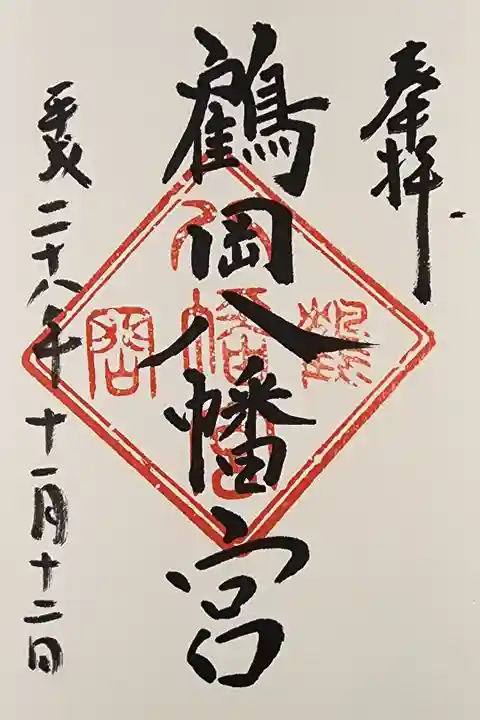 奉拝
鶴岡八幡宮
鶴
八幡宮
岡
平成二十八年十一月十二日